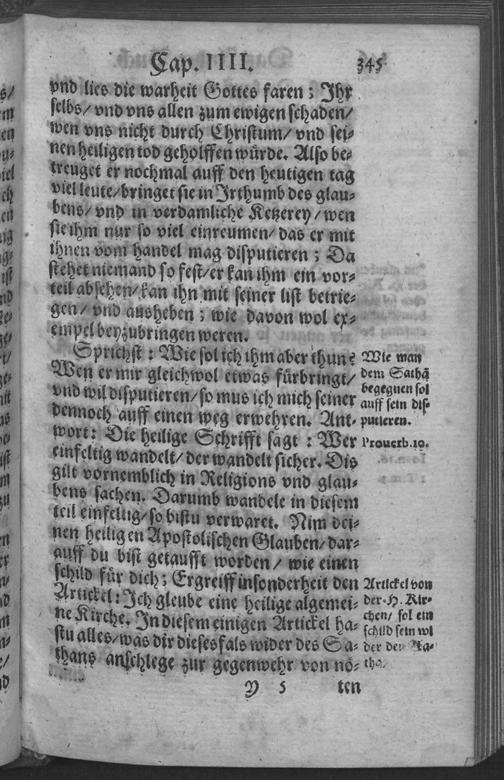 Cap. IIII. 345
vnd lies die warheit Gottes faren; Jhr
selbs/ vnd vns allen zum ewigen schaden/
wen vns nicht durch Christum/ vnd sei-
nen heiligen tod geholffen würde. Also be-
treuget er nochmal auff den heutigen tag
viel leute/ bringet sie in Jrthumb des glau-
bens/ vnd in verdamliche Ketzerey/ wen
sie ihm nur so viel einreumen/ das er mit
ihnen vom handel mag disputieren; Da
stehet niemand so fest/ er kan ihm ein vor-
teil absehen/ kan ihn mit seiner list betrie-
gen/ vnd ausheben; wie davon wol ex-
empel beyzubringen weren.
Sprichst: Wie sol ich ihm aber thun?
Wen er mir gleichwol etwas fürbringt/
vnd wil disputieren/ so mus ich mich seiner
dennoch auff einen weg erwehren. Ant-
wort: Die heilige Schrifft sagt: Wer
einfeltig wandelt/ der wandelt sicher. Dis
gilt vornemblich in Religions vnd glau-
bens sachen. Darumb wandele in diesem
teil einfeltig/ so bistu verwaret. Nim dei-
nen heiligen Apostolischen Glauben/ dar-
auff du bist getaufft worden/ wie einen
schild für dich; Ergreiff insonderheit den
Artickel: Jch gleube eine heilige algemei-
ne Kirche. Jn diesem einigen Artickel ha-
stu alles/ was dir diesesfals wider des Sa-
thans anschlege zur gegenwehr von nö-
Y 5 ten
Wie man
dem Sathã
begegnen sol
auff sein dis-
putieren.
Prouerb. 10.
Artickel von
der H. Kir-
chen/ sol ein
schild sein wi
der den Sa-
than.